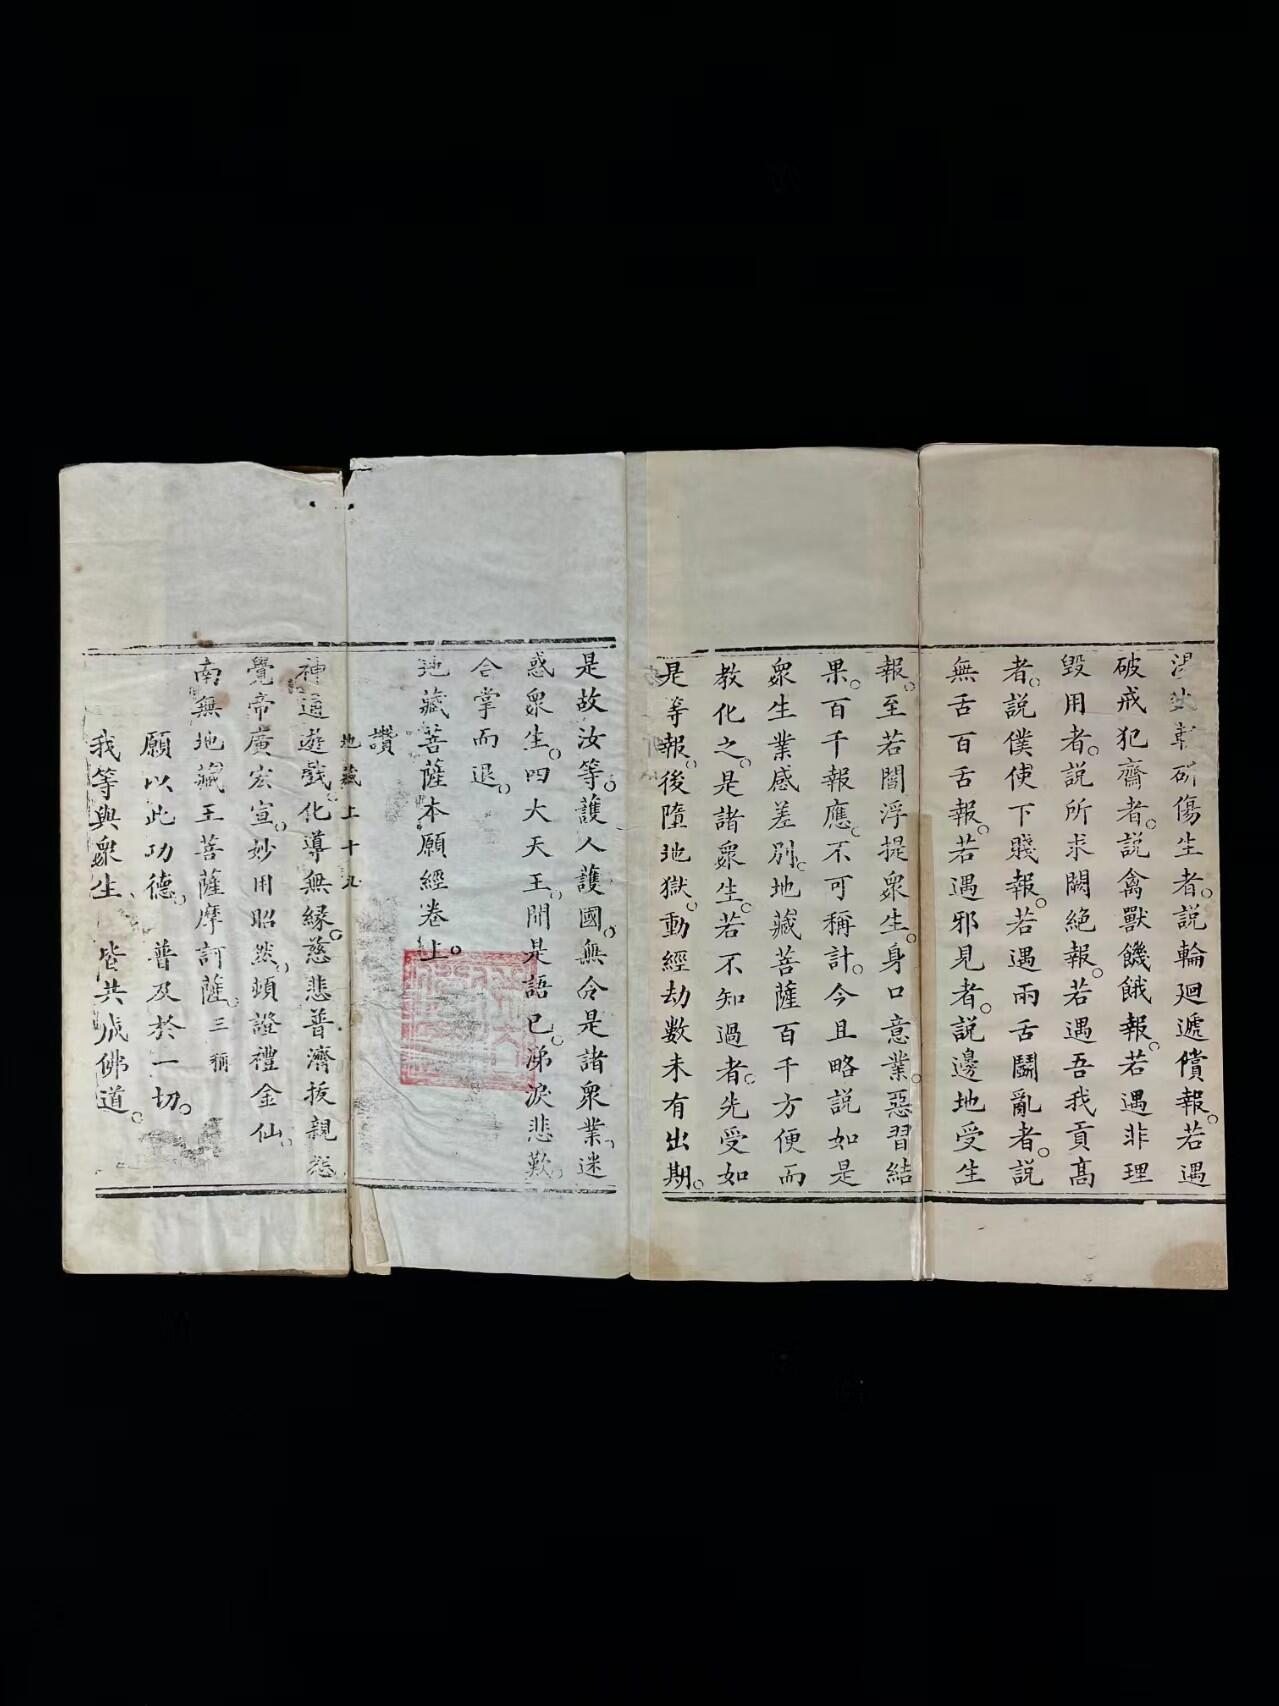 湯火斬斫傷生者。説輪廻遞償報。若遇
破戒犯齋者。説禽獸饑餓報。若遇非理
毀用者。説所求闕絶報。若遇吾我貢髙
者。説僕使下賤報。若遇兩舌鬬亂者。説
無舌百舌報。若遇邪見者。説邊地受生
報。至若閻浮提衆生。身口意業。惡習結
果。百千報應。不可稱計。今且略説如是
衆生業感差别。地藏菩薩百千方便而
教化之。是諸衆生。若不知過者。先受如
是等報。後墮地獄。動經劫數未有出期。
是故汝等。護人護國。無令是諸衆業。迷
惑衆生。四大天王。聞是語已。涕淚悲歎。
合掌而退。
地藏菩薩本願經卷上。
讚
地藏上十九
神通遊戲化導無縁。慈悲普濟拔親愆
覺帝廣宏宣。妙用昭然。頓證禮金仙。
南無地藏王菩薩摩訶薩。三稱
願以此功德。普及於一切。
我等與衆生、皆共成佛道。